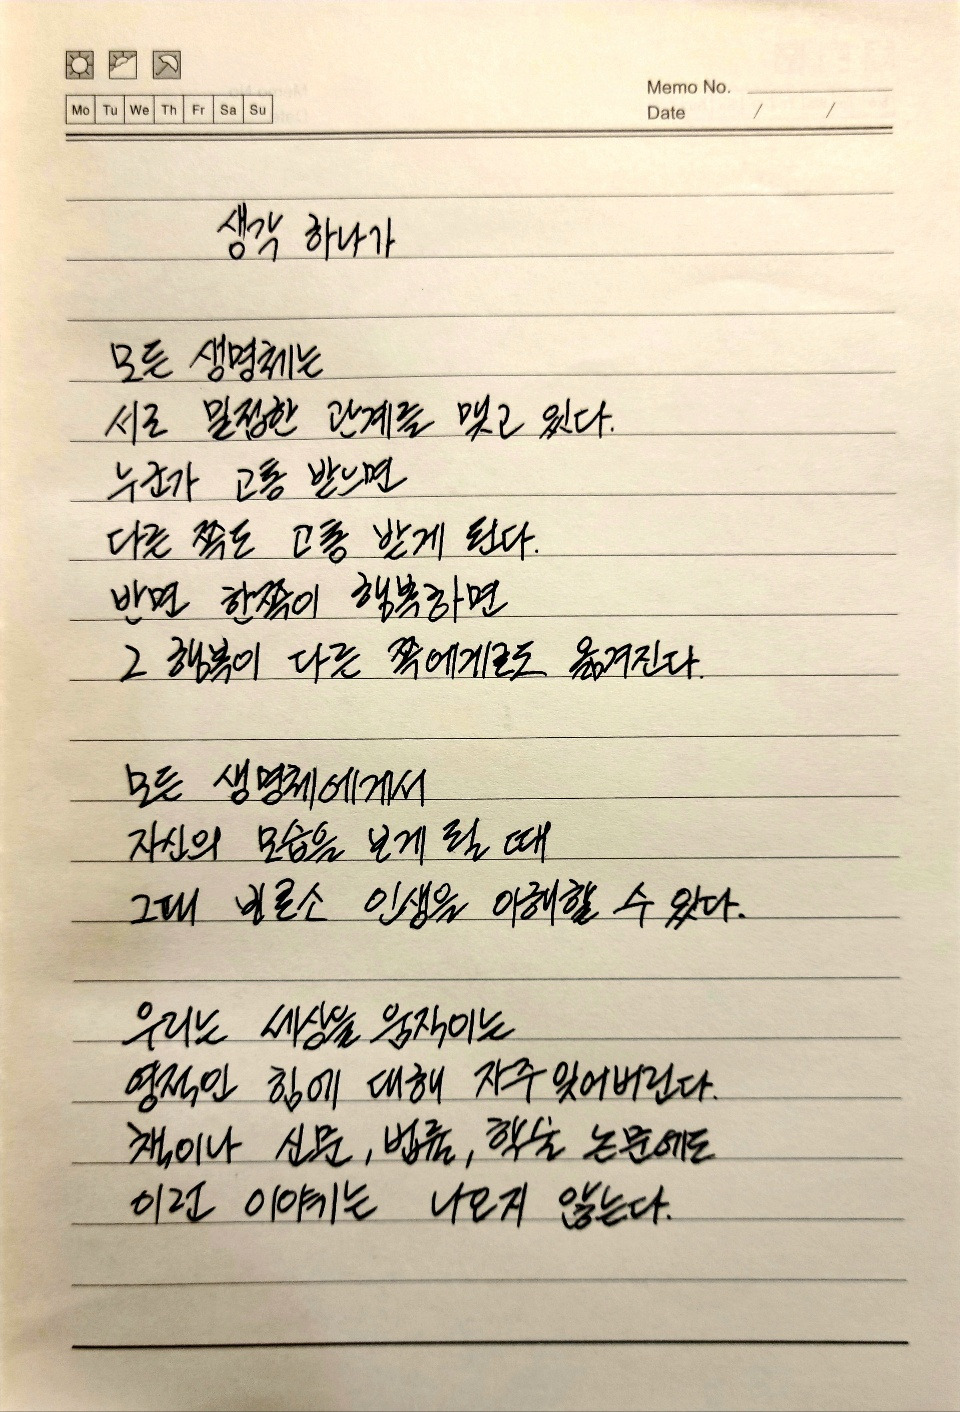 Memo No.
Mo Tu We Th Fr Sa Su
Date / /
생각 하나가
모든 생명체는
서로 밀접한 관계를 맺고 있다.
누군가 고통 받으면
다른 쪽도 고통 받게 된다.
반면 한쪽이 행복하면
그 행복이 다른 쪽에게로도 옮겨진다.
모든 생명체에게서
자신의 모습을 보게 될 때
그때 비로소 인생을 이해할 수 있다.
우리는 세상을 움직이는
영적인 힘에 대해 자주 잊어버린다.
책이나 신문, 법률, 학술 논문에도
이런 이야기는 나오지 않는다.